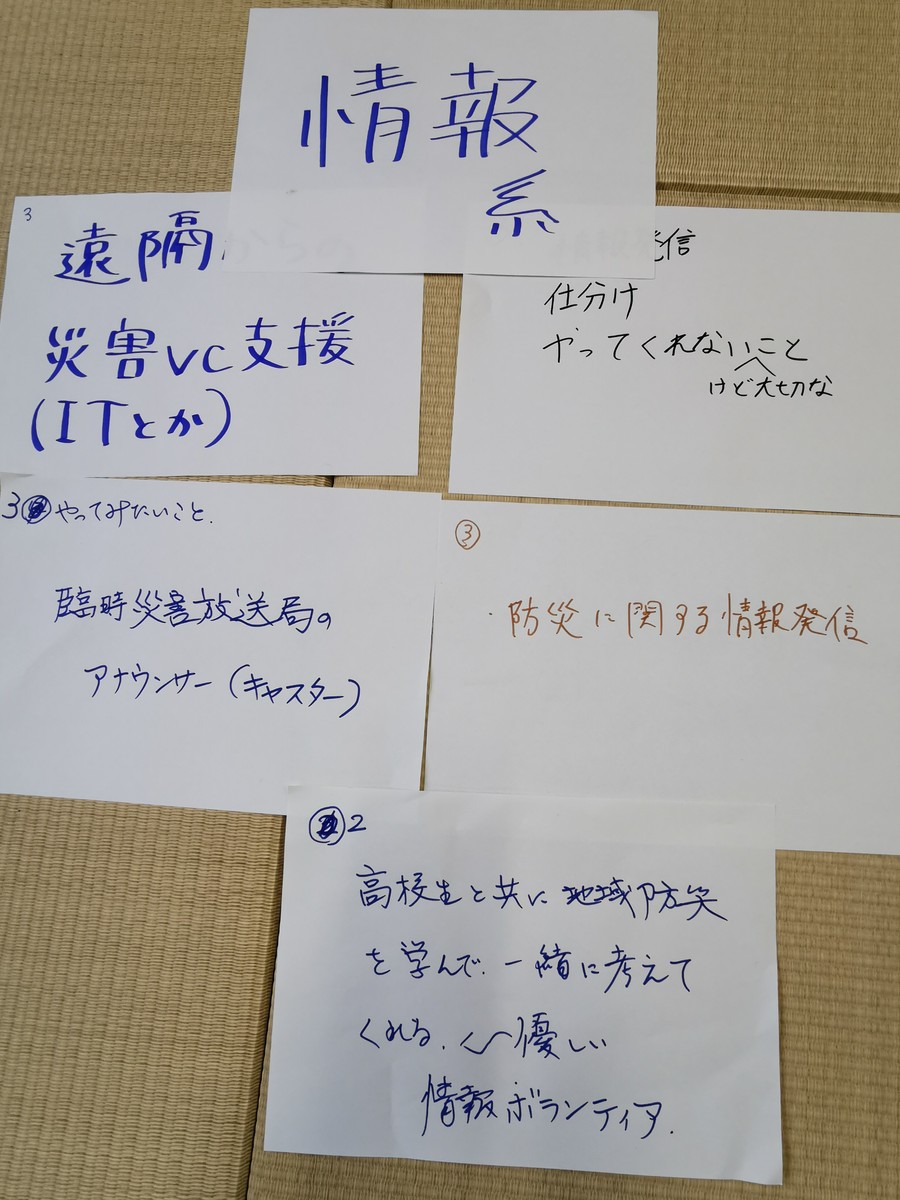 情報
系
3
遠隔からの
災害VC支援
(ITとか)
情報発信
仕分け
やってくれないこと
けど大切な
3 やってみたいこと.
臨時災害放送局の
アナウンサー(キャスター)
③
・防災に関する情報発信
2
高校生と共に地域防災
を学んで、一緒に考えて
くれる、
優しい
情報ボランティア.